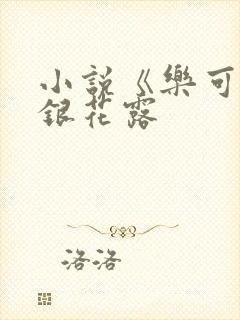 小説《樂可
銀花露
洛洛